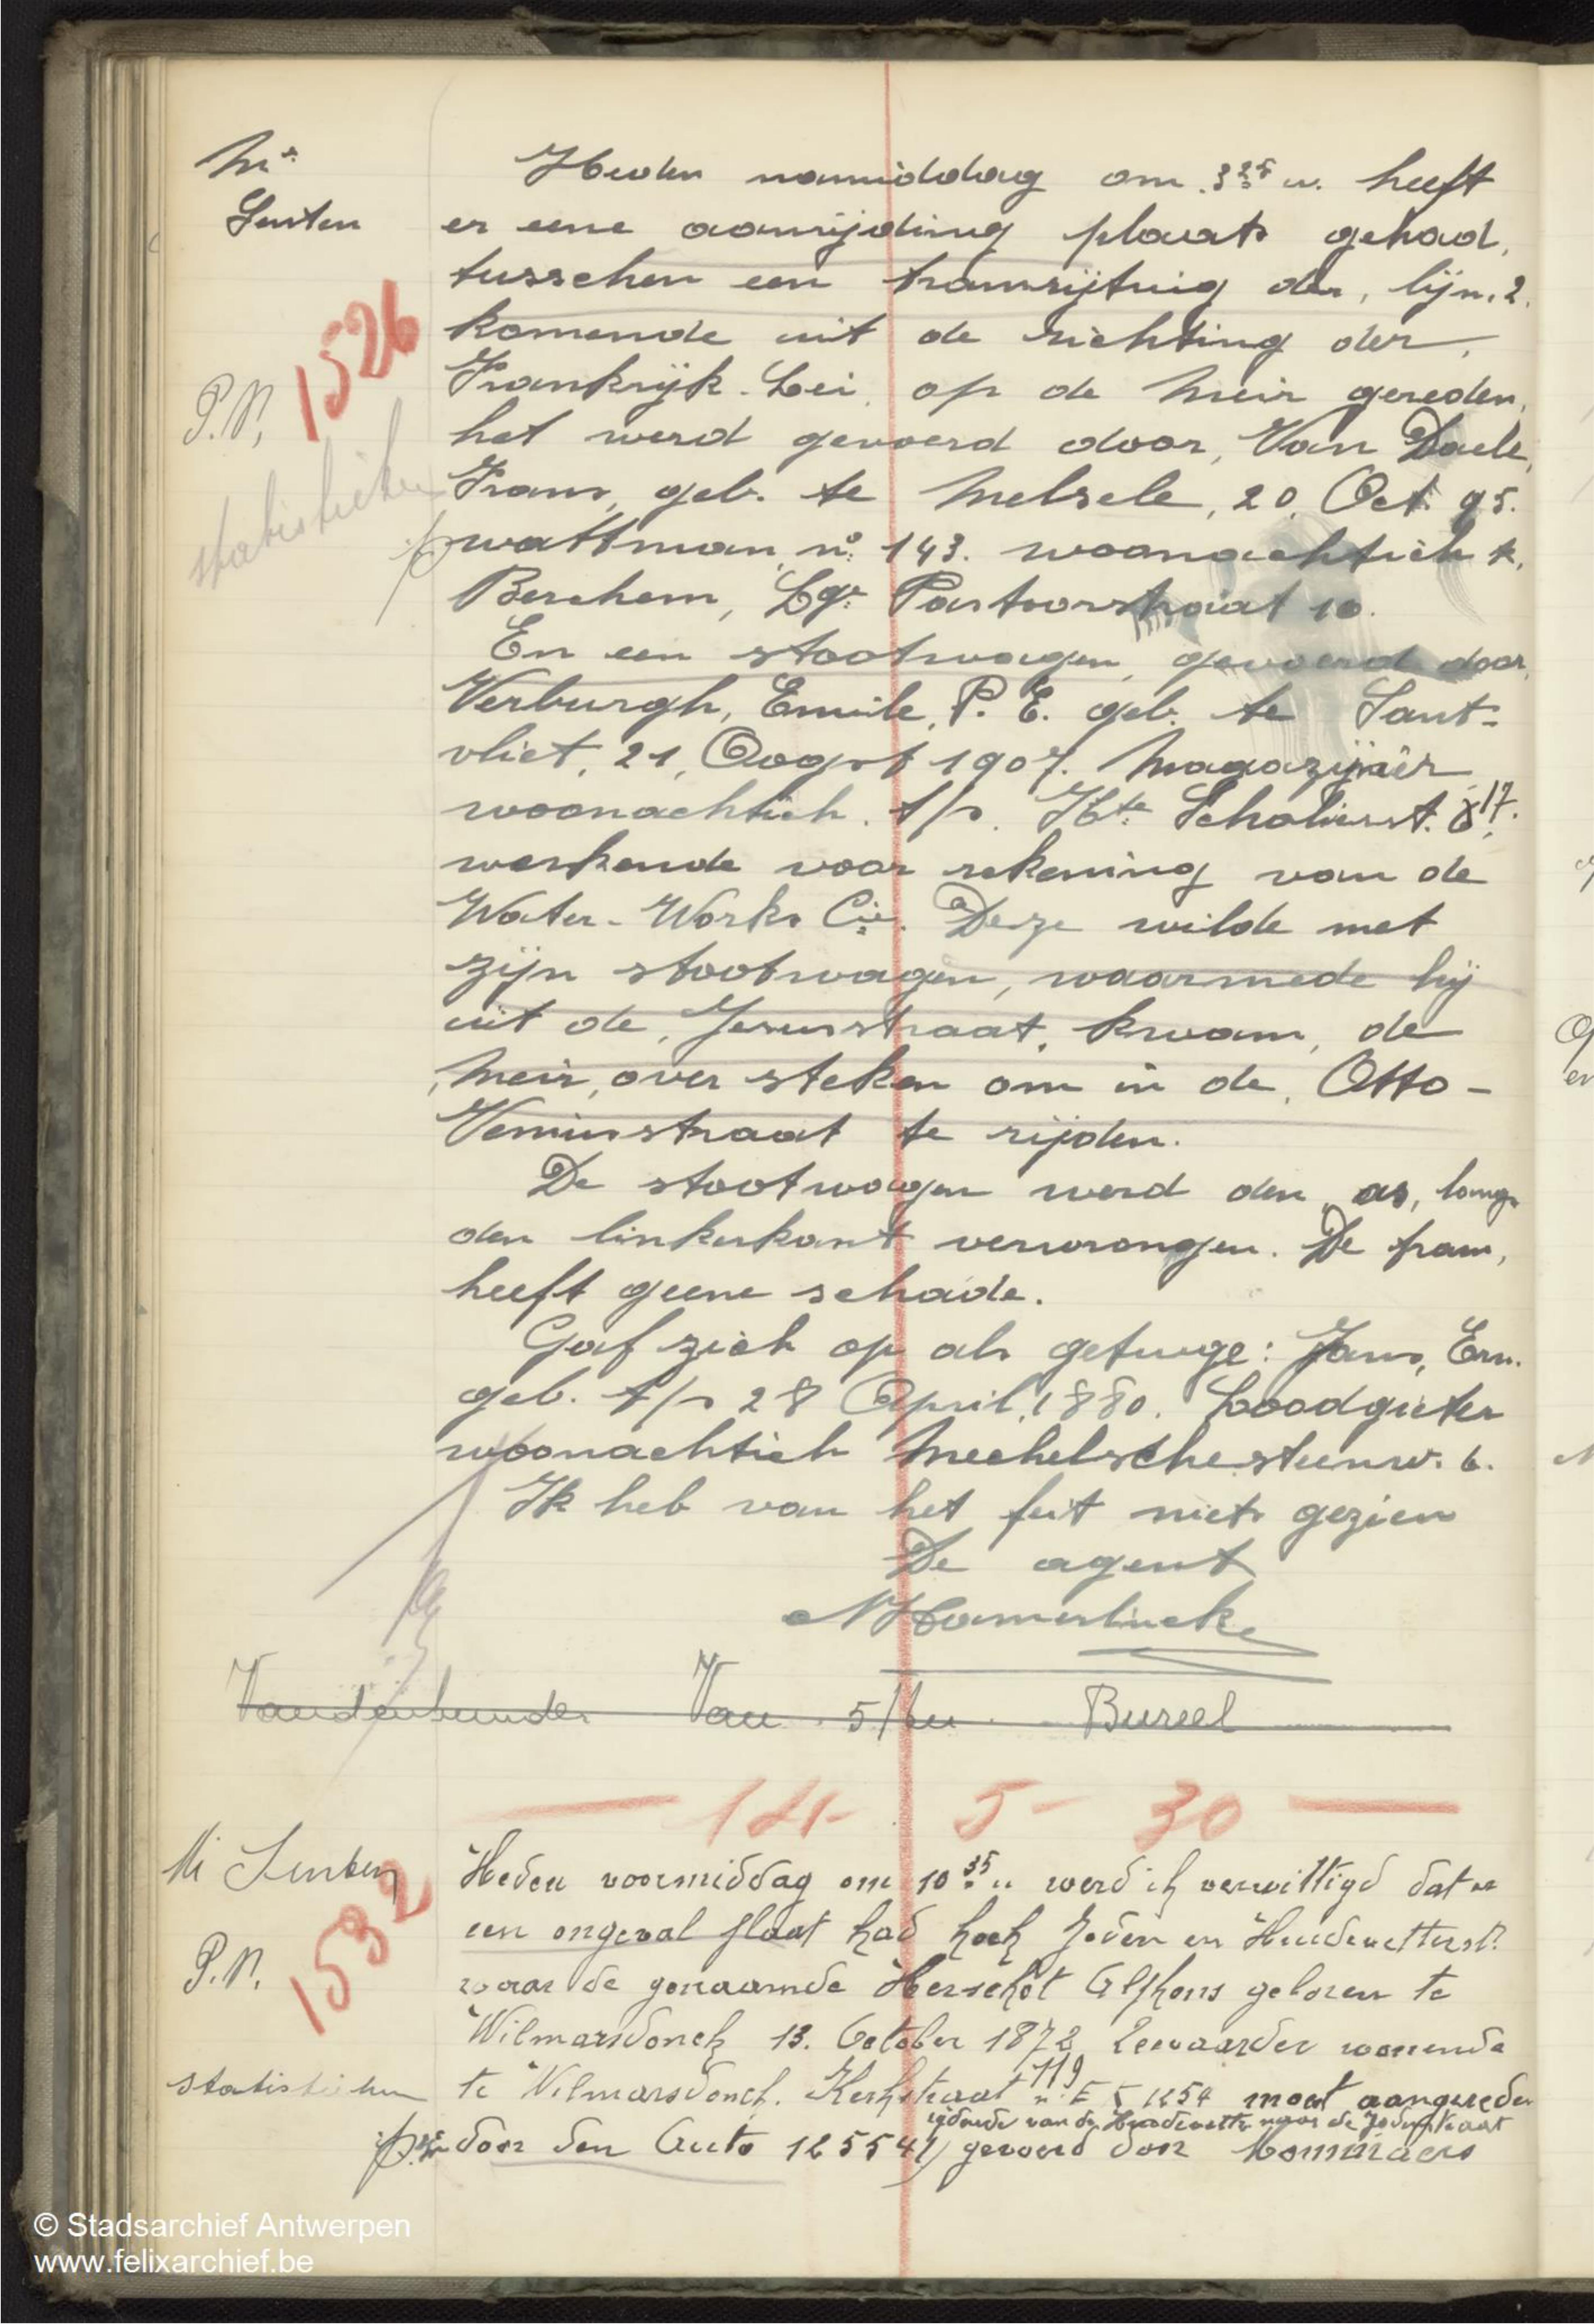 Mr
Senten
Heden namiddag om 3 25 u. heeft
er eene aanrijding plaats gehad,
tusschen een tramrijtuig der, lijn, 2.
komende uit de richting der,
Frankrijk-Lei, op de Meir gereden,
1526
P.V,
het werd gevoerd door, Van Daele,
Frans, geb. te Melsele, 20, Oct. 95.
statistieken
wattman, n° 143. woonachtich te,
Berchem, Lge Pastoorstraat 10.
En een stootwagen, gevoerd door,
Verburgh, Emile, P. E. geb. te Sant-
vliet, 21, Oogst 1907. Magazijnier
woonachtich. t/s. Hte Scholierst. 17.
werkende voor rekening van de
Water-Works Cie. Deze wilde met
zijn stootwagen, waarmede hij
uit de, Jesusstraat, kwam, de
Meir, over steken om in de, Otto-
Veniusstraat te rijden.
De stootwagen werd den as, langs
den linkerkant verwrongen. De tram,
heeft geene schade.
Gaf zich op als getuige: Jans, Ern.
geb. t/s 28 April, 1880. Loodgieter
woonachtich Mechelschesteenw. 6.
Ik heb van het feit niets gezien
De agent
Hamerlinck
Van 5/ Bureel
14 - 5 - 30
Mi Senten
Heden voormiddag om 10 35 u werd ik verwittigd dat er
een ongeval plaat had hoek Joden en Huidevetterst.
1532
P.V.
waar de genaamde Herschot Alfhons geboren te
Wilmarsdonck 13. October 1872 Bewaarder wonende
statistieken
te Wilmarsdonck. Kerkstraat n° 119 1254 moet aangereden
rijdende van de Huidevetter naar de Jodenstraat
door den Auto 125541 gevoerd door Commraers
© Stadsarchief Antwerpen
www.felixarchief.be